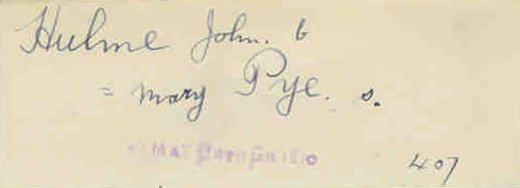 Hulme John. b
= Mary Pye. s.
407